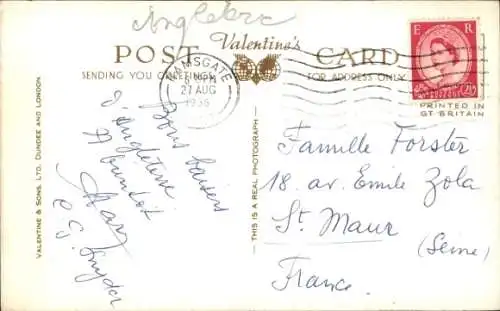 Angleterre
POST Valentine's CARD
SENDING YOU GREETINGS FOR ADDRESS ONLY
RAMSGATE
27 AUG
1956
E R
PRINTED IN
GT BRITAIN
VALENTINE & SONS, LTD. DUNDEE AND LONDON
THIS IS A REAL PHOTOGRAPH
Bons baisers
d'Angleterre
A bientôt
Mary
Famille Forster
18, av. Emile Zola
St. Maur
(Seine)
France.